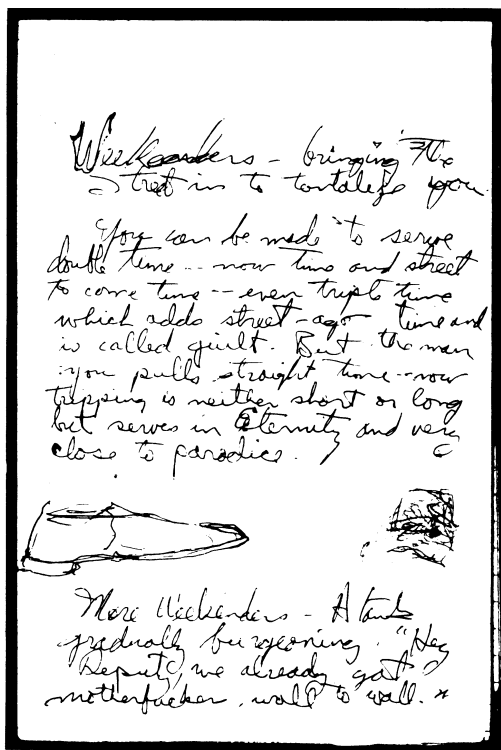 Weekenders - bringing The
Street in to tantalize you
You can be made to serve
double time -- now time and street
to come time -- even triple time
which adds street-ago time and
is called guilt. But the man
in you pulls straight time -- now
tripping is neither short or long
but serves in Eternity and very
close to paradice.
More Weekenders - A tank
gradually burgeoning. "Hey
Deputy, we already got
motherfucker wall to wall."